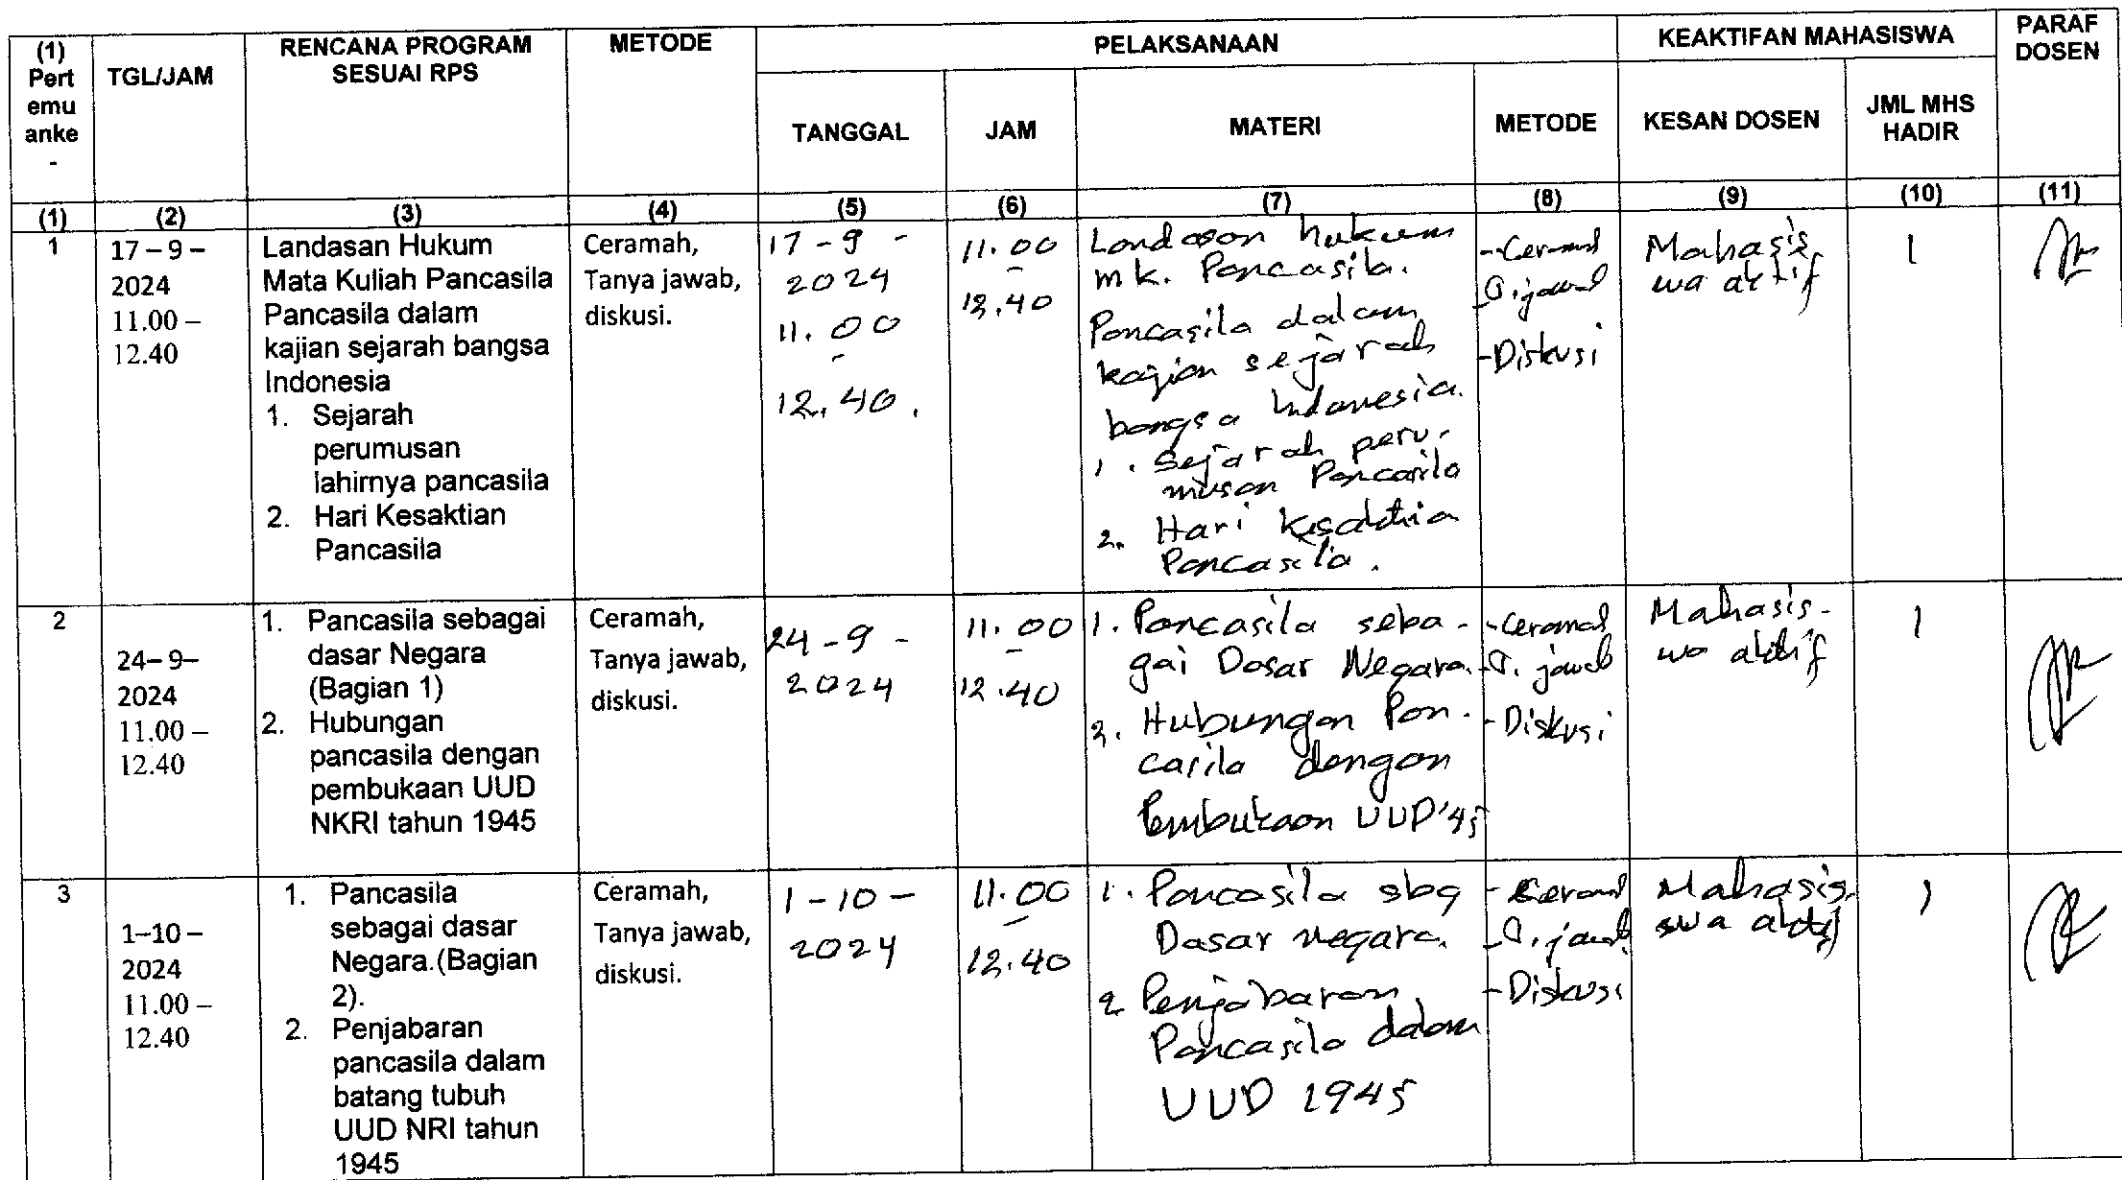 (1) Pert emu anke -
TGL/JAM
RENCANA PROGRAM SESUAI RPS
METODE
PELAKSANAAN
KEAKTIFAN MAHASISWA
PARAF DOSEN
TANGGAL
JAM
MATERI
METODE
KESAN DOSEN
JML MHS HADIR
(1) (2) (3) (4) (5) (6) (7) (8) (9) (10) (11)
1
17 – 9 –
2024
11.00 –
12.40
Landasan Hukum
Mata Kuliah Pancasila
Pancasila dalam
kajian sejarah bangsa
Indonesia
1. Sejarah
perumusan
lahirnya pancasila
2. Hari Kesaktian
Pancasila
Ceramah,
Tanya jawab,
diskusi.
17 - 9 -
2024
11.00
-
12.40.
11.00
-
12.40
Landasan hukum
mk. Pancasila.
Pancasila dalam
kajian sejarah
bangsa Indonesia.
1. Sejarah peru-
musan Pancasila
2. Hari
Pancasila.
- Ceramah
jawab
- Diskusi
Mahasis
wa aktif
1
2
24– 9–
2024
11.00 –
12.40
1. Pancasila sebagai
dasar Negara
(Bagian 1)
2. Hubungan
pancasila dengan
pembukaan UUD
NKRI tahun 1945
Ceramah,
Tanya jawab,
diskusi.
24 - 9 -
2024
11.00
-
12.40
1. Pancasila seba-
gai Dasar Negara.
2. Hubungan Pan-
casila dengan
Pembukaan UUD'45
- Ceramah
jawab
- Diskusi
Mahasis-
wa aktif
1
3
1–10 –
2024
11.00 –
12.40
1. Pancasila
sebagai dasar
Negara.(Bagian
2).
2. Penjabaran
pancasila dalam
batang tubuh
UUD NRI tahun
1945
Ceramah,
Tanya jawab,
diskusi.
1 - 10 -
2024
11.00
-
12.40
1. Pancasila sbg
Dasar negara.
2 Penjabaran
Pancasila dalam
UUD 1945
- Ceramah
jawab
- Diskusi
Mahasis
swa aktif
1